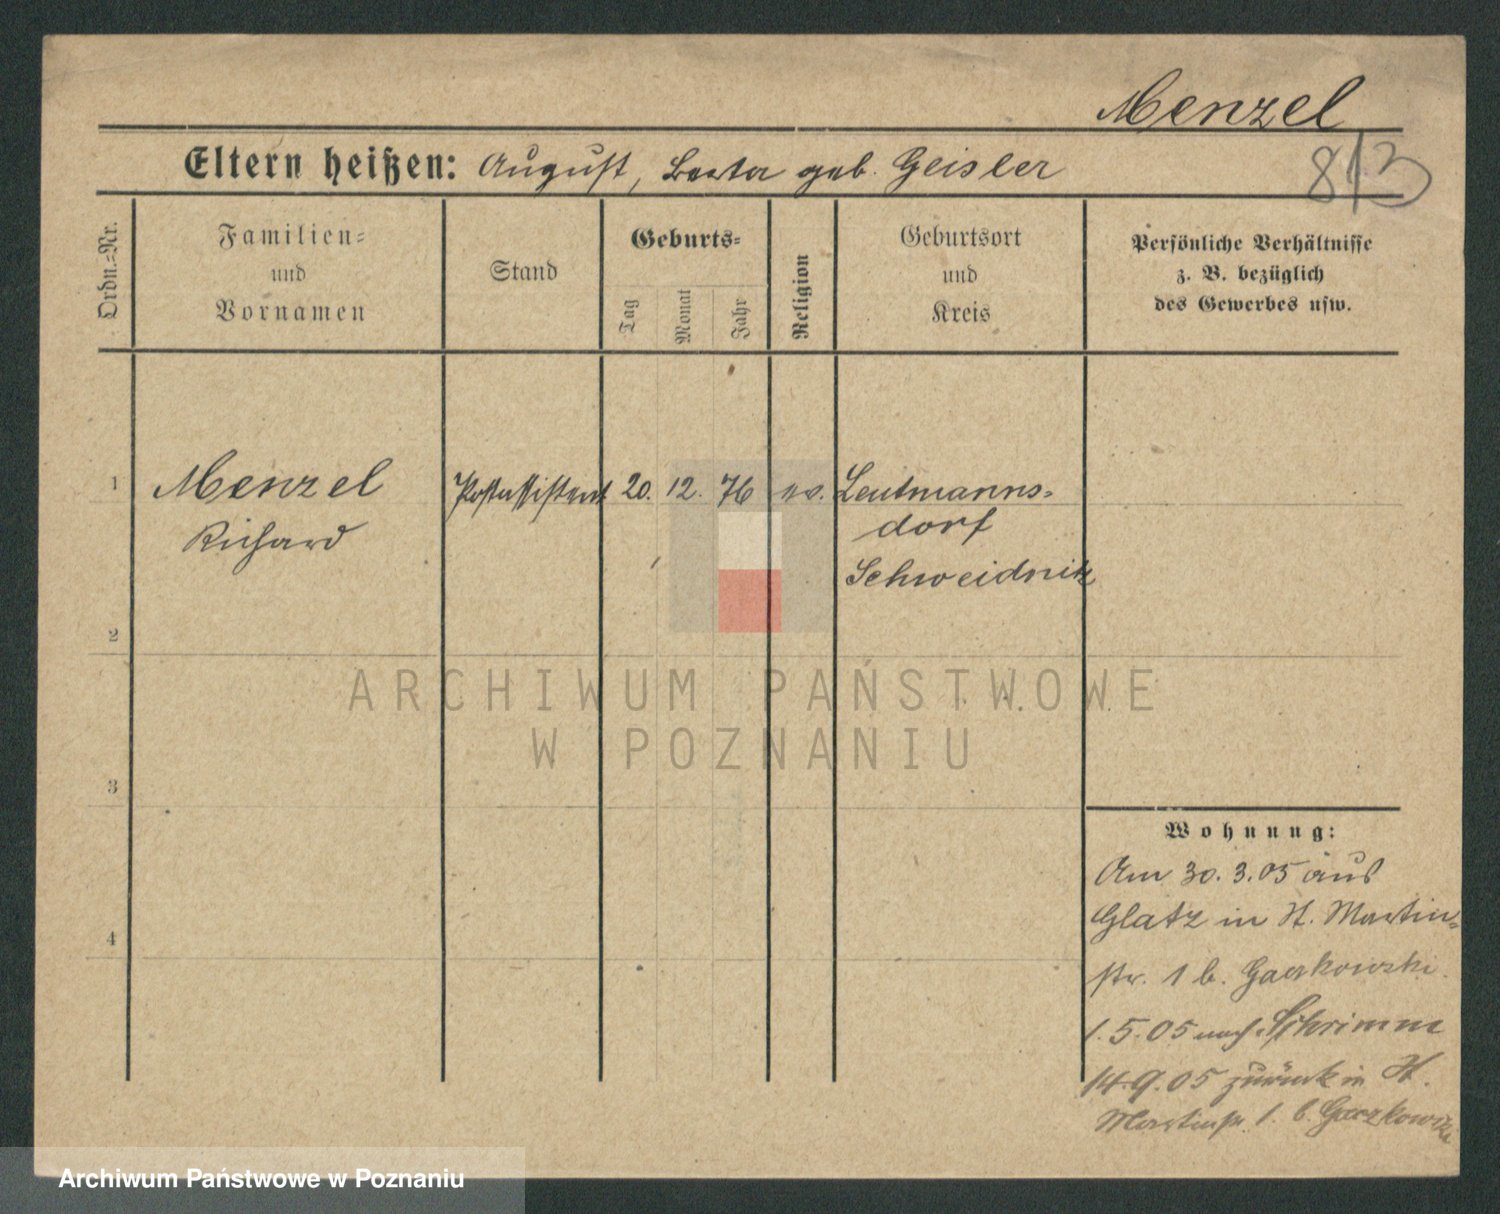 Menzel
Eltern heißen: August, Berta geb. Geisler
813
Ordn.-Nr.
Familien-
und
Vornamen
Stand
Geburts-
Tag
Monat
Jahr
Religion
Geburtsort
und
Kreis
Persönliche Verhältnisse
z. B. bezüglich
des Gewerbes usw.
1 Menzel Postassistent 20. 12. 76 ev. Leutmanns-
Richard dorf
Schweidnitz
2
3
4
ARCHIWUM PAŃSTWOWE
W POZNANIU
Wohnung:
Am 30.3.05 aus
Glatz in St. Martin-
str. 1 b.
1.5.05 nach Schrimm
14.9.05 zurück in St.
Martinstr. 1. b.
Archiwum Państwowe w Poznaniu